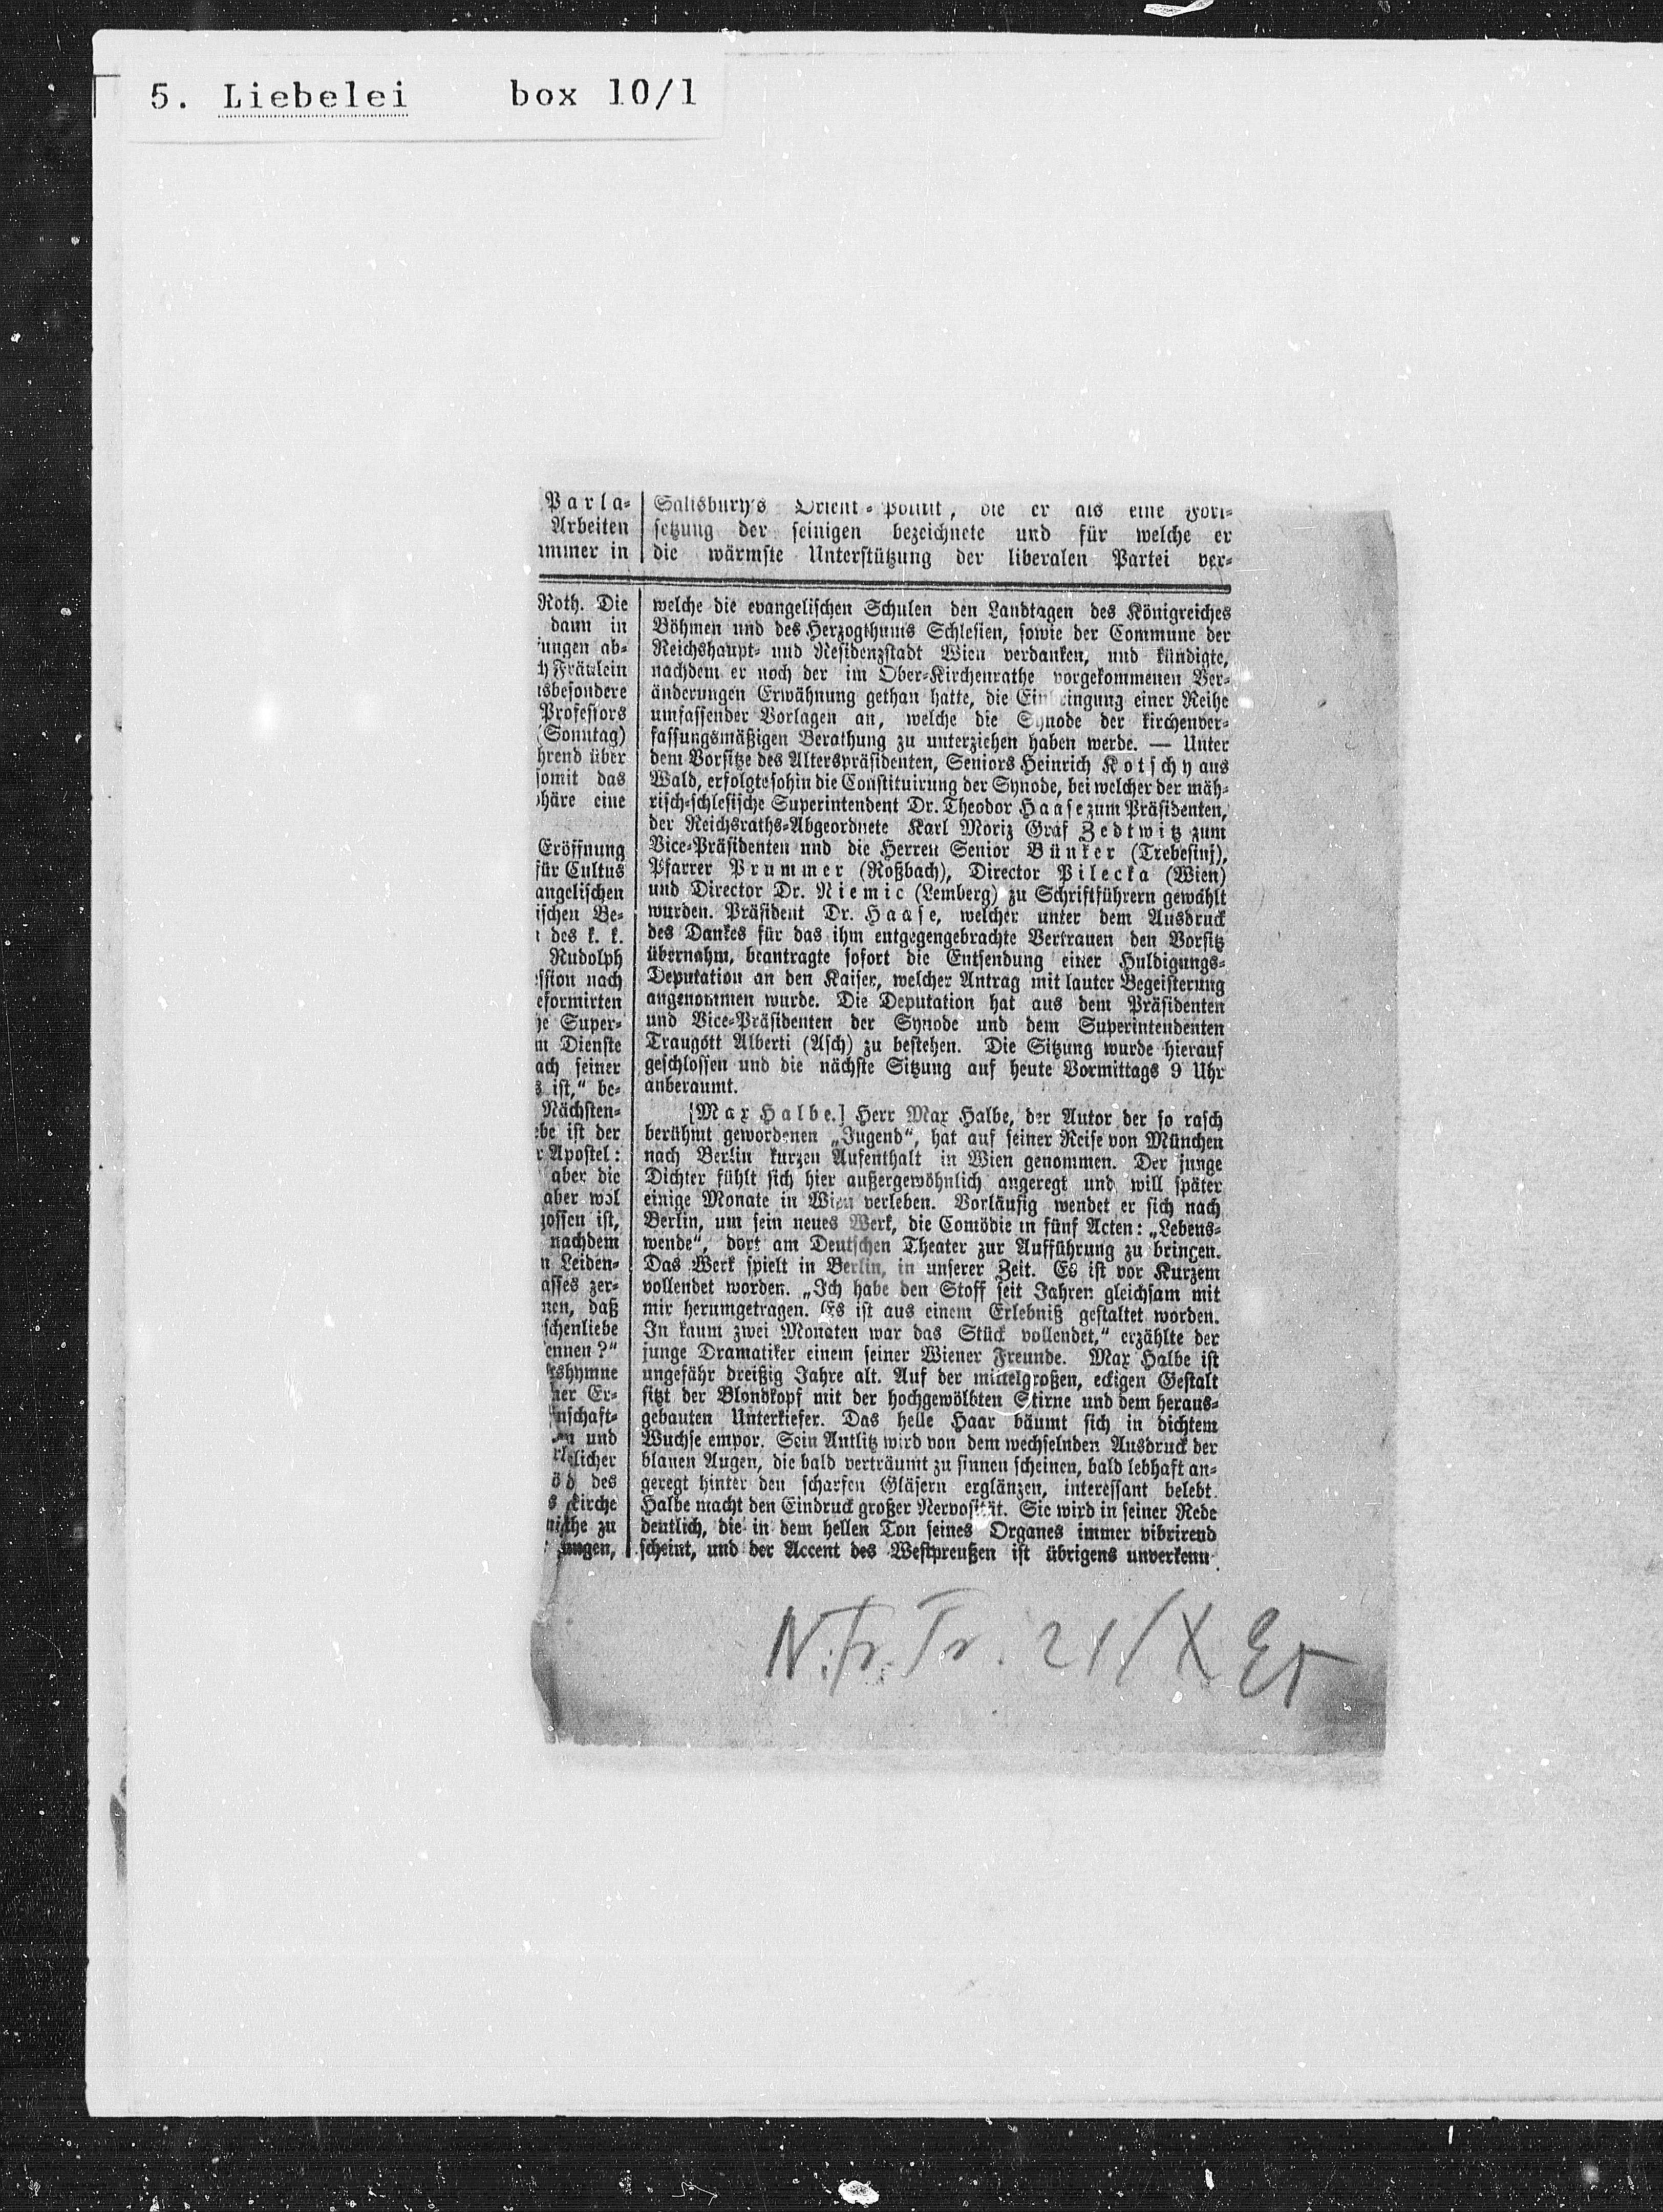 5. Liebelei box 10/1
Parla-
Arbeiten
immer in
Salisbury's Orient-Politik, die er als eine Fort-
setzung der seinigen bezeichnete und für welche er
die wärmste Unterstützung der liberalen Partei ver-
Roth. Die
dann in
ungen ab-
h Fräulein
isbesondere
Professors
(Sonntag)
hrend über
somit das
phäre eine
Eröffnung
für Cultus
angelischen
ischen Be-
des k. k.
Rudolph
ession nach
eformirten
he Super-
m Dienste
ach seiner
s ist," be-
Nächsten-
ebe ist der
r Apostel:
aber die
aber wol
gossen ist,
nachdem
n Leiden-
asses zer-
nen, daß
schenliebe
ennen?"
shymne
ner Er-
nschaft-
und
licher
öd des
s Kirche
the zu
ungen,
welche die evangelischen Schulen den Landtagen des Königreiches
Böhmen und des Herzogthums Schlesien, sowie der Commune der
Reichshaupt- und Residenzstadt Wien verdanken, und kündigte,
nachdem er noch der im Ober-Kirchenrathe vorgekommenen Ver-
änderungen Erwähnung gethan hatte, die Einbringung einer Reihe
umfassender Vorlagen an, welche die Synode der kirchenver-
fassungsmäßigen Berathung zu unterziehen haben werde. — Unter
dem Vorsitze des Alterspräsidenten, Seniors Heinrich Kotschy aus
Wald, erfolgte sohin die Constituirung der Synode, bei welcher der mäh-
risch-schlesische Superintendent Dr. Theodor Haase zum Präsidenten,
der Reichsraths-Abgeordnete Karl Moriz Graf Zedtwitz zum
Vice-Präsidenten und die Herren Senior Bünker (Trebesinj),
Pfarrer Prummer (Roßbach), Director Pilecka (Wien)
und Director Dr. Niemic (Lemberg) zu Schriftführern gewählt
wurden. Präsident Dr. Haase, welcher unter dem Ausdruck
des Dankes für das ihm entgegengebrachte Vertrauen den Vorsitz
übernahm, beantragte sofort die Entsendung einer Huldigungs-
Deputation an den Kaiser, welcher Antrag mit lauter Begeisterung
angenommen wurde. Die Deputation hat aus dem Präsidenten
und Vice-Präsidenten der Synode und dem Superintendenten
Traugott Alberti (Asch) zu bestehen. Die Sitzung wurde hierauf
geschlossen und die nächste Sitzung auf heute Vormittags 9 Uhr
anberaumt.
[Max Halbe.] Herr Max Halbe, der Autor der so rasch
berühmt gewordenen „Jugend", hat auf seiner Reise von München
nach Berlin kurzen Aufenthalt in Wien genommen. Der junge
Dichter fühlt sich hier außergewöhnlich angeregt und will später
einige Monate in Wien verleben. Vorläufig wendet er sich nach
Berlin, um sein neues Werk, die Comödie in fünf Acten: „Lebens-
wende", dort am Deutschen Theater zur Aufführung zu bringen.
Das Werk spielt in Berlin, in unserer Zeit. Es ist vor Kurzem
vollendet worden. „Ich habe den Stoff seit Jahren gleichsam mit
mir herumgetragen. Es ist aus einem Erlebniß gestaltet worden.
In kaum zwei Monaten war das Stück vollendet," erzählte der
junge Dramatiker einem seiner Wiener Freunde. Max Halbe ist
ungefähr dreißig Jahre alt. Auf der mittelgroßen, eckigen Gestalt
sitzt der Blondkopf mit der hochgewölbten Stirne und dem heraus-
gebauten Unterkiefer. Das helle Haar bäumt sich in dichtem
Wuchse empor. Sein Antlitz wird von dem wechselnden Ausdruck der
blauen Augen, die bald verträumt zu sinnen scheinen, bald lebhaft an-
geregt hinter den scharfen Gläsern erglänzen, interessant belebt.
Halbe macht den Eindruck großer Nervosität. Sie wird in seiner Rede
deutlich, die in dem hellen Ton seines Organes immer vibrirend
scheint, und der Accent des Westpreußen ist übrigens unverkenn-
N. Fr. Pr. 21/X 95